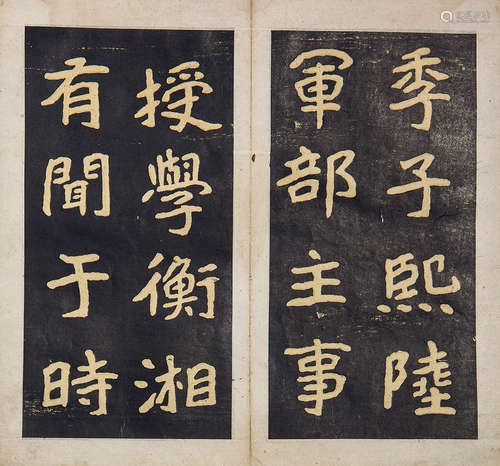 季子熙陸
軍部主事
授學衡湘
有聞于時